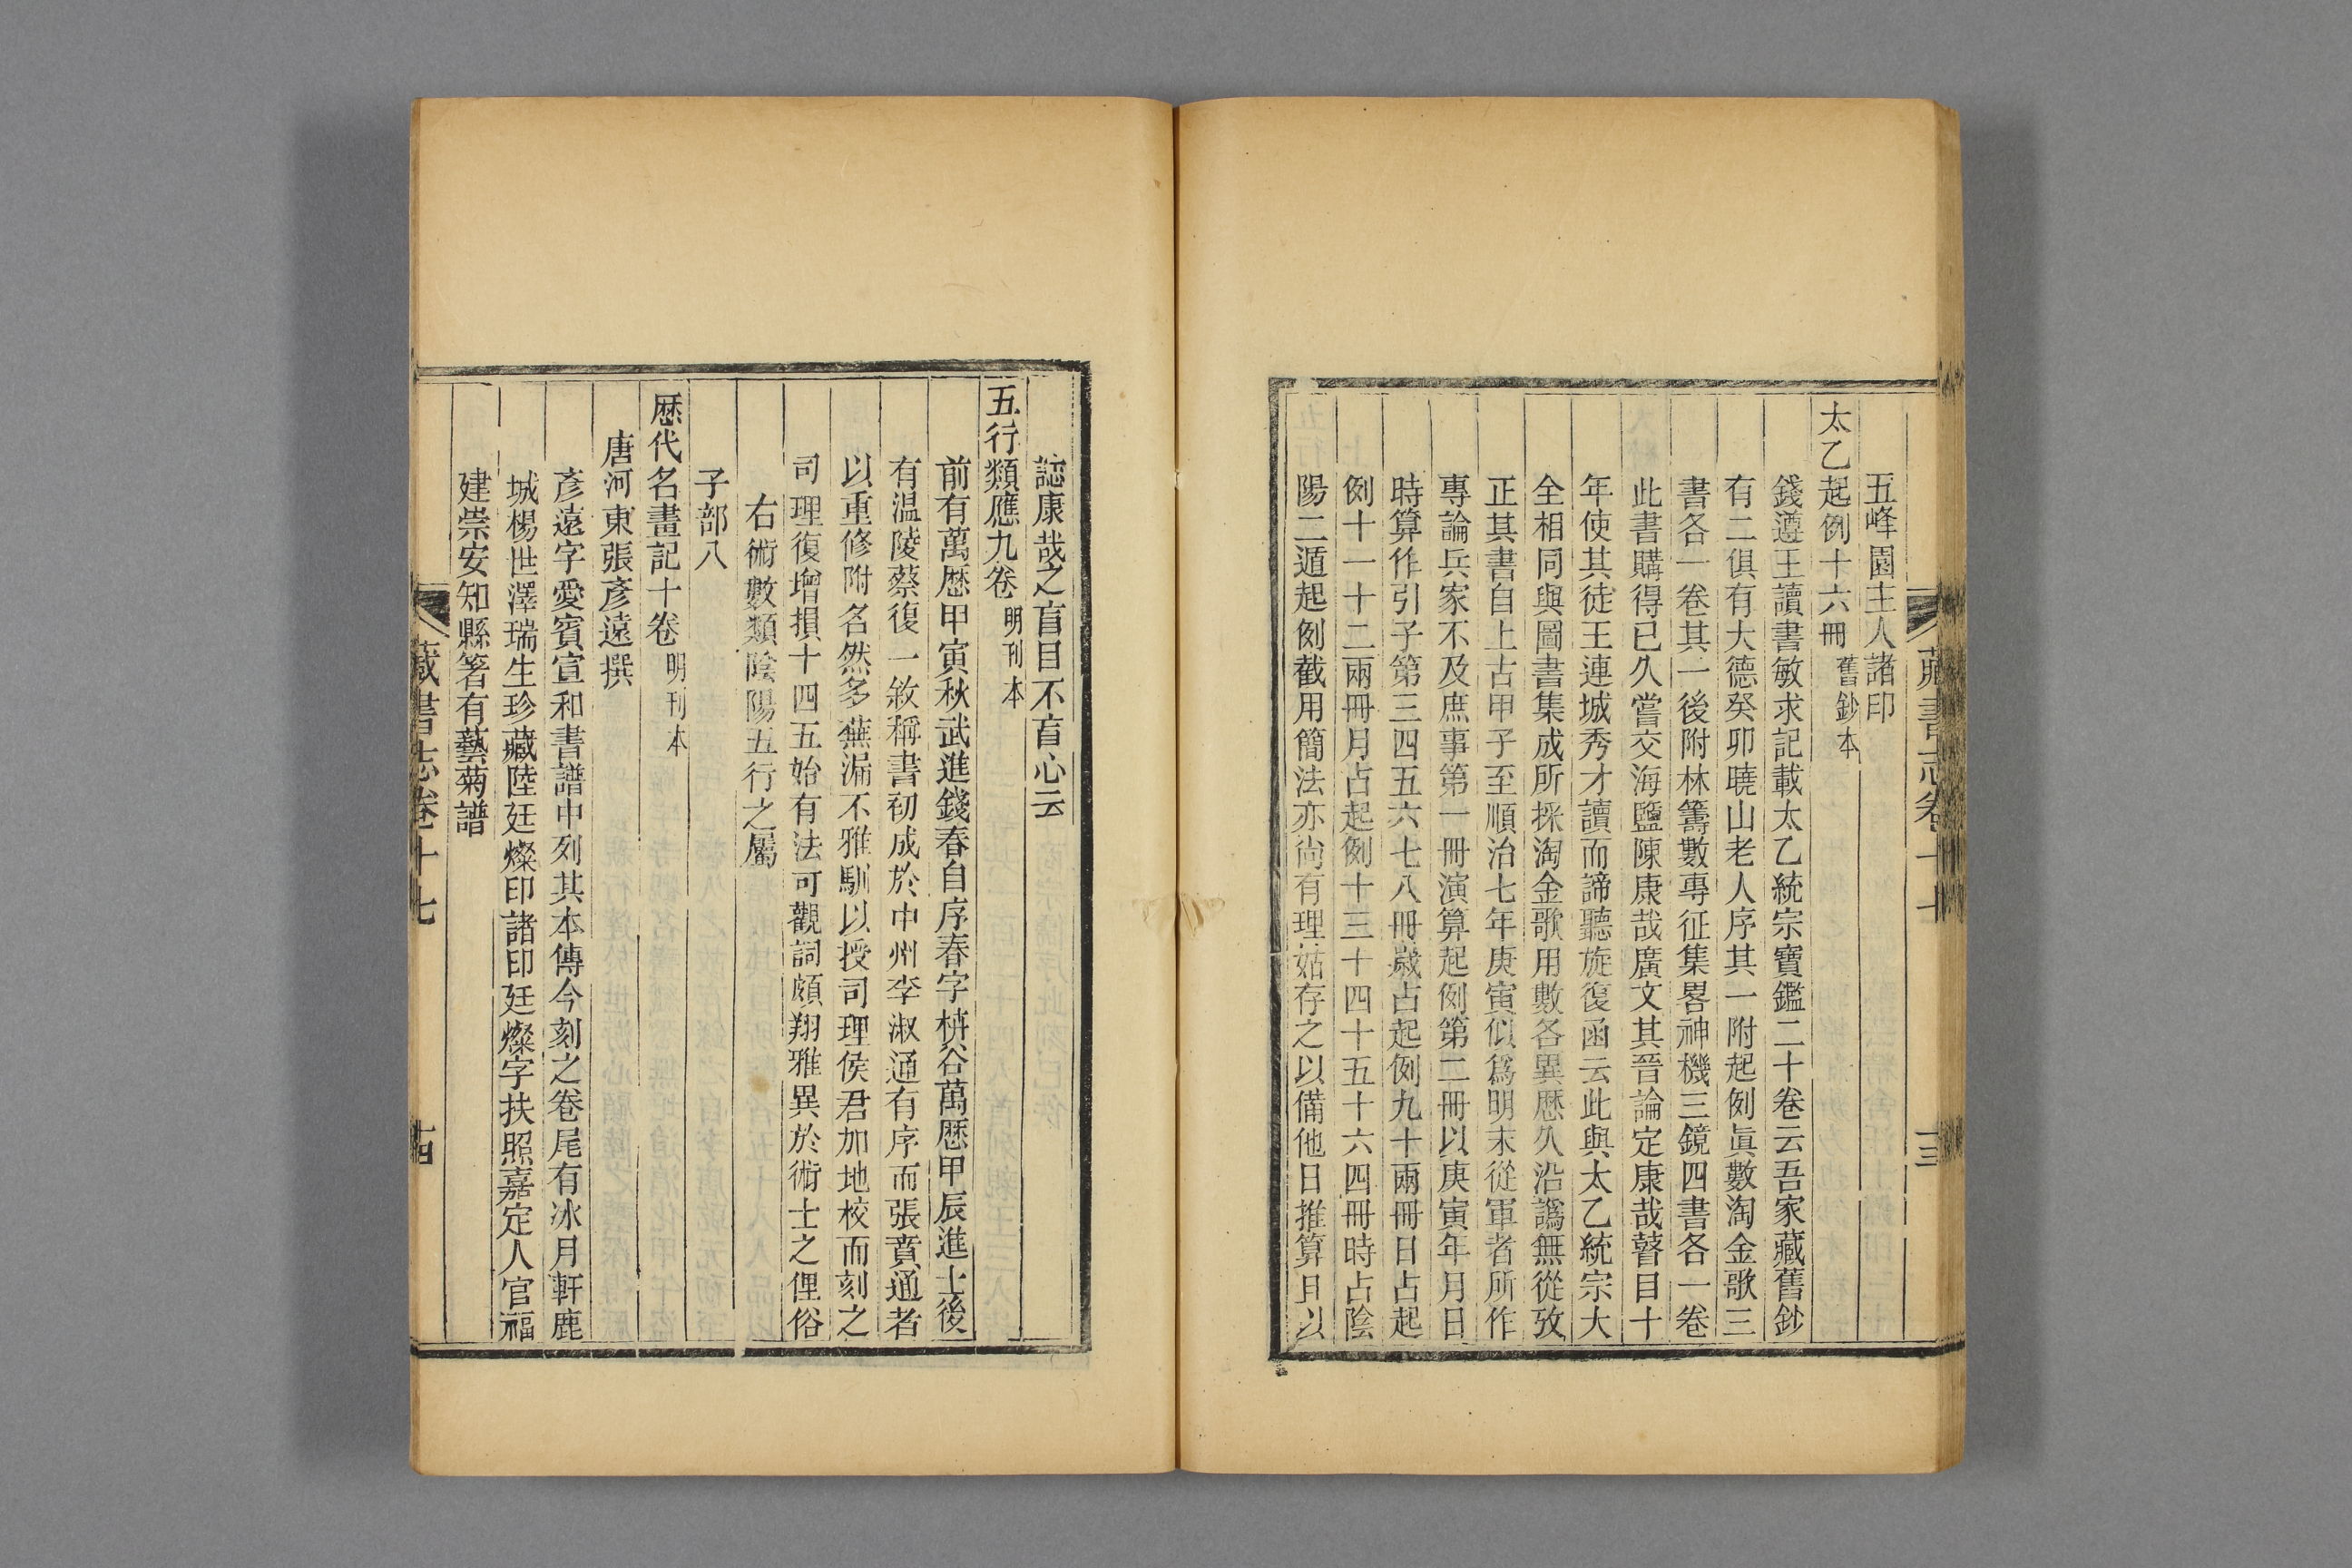 藏書志卷十七
十三
五峰園主人諸印
太乙起例十六冊舊鈔本
錢遵王讀書敏求記載太乙統宗寶鑑二十卷云吾家藏舊鈔
有二俱有大德癸卯曉山老人序其一附起例眞數淘金歌三
書各一卷其一後附林籌數專征集畧神機三鏡四書各一卷
此書購得已久嘗交海鹽陳康哉廣文其晉論定康哉瞽目十
年使其徒王連城秀才讀而諦聽旋復函云此與太乙統宗大
全相同與圖書集成所採淘金歌用數各異歷久沿譌無從攷
正其書自上古甲子至順治七年庚寅似爲明末從軍者所作
專論兵家不及庶事第一冊演算起例第二冊以庚寅年月日
時算作引子第三四五六七八冊歲占起例九十兩冊日占起
例十一十二兩冊月占起例十三十四十五十六四冊時占陰
陽二遁起例截用簡法亦尚有理姑存之以備他日推算且以
誌康哉之盲目不盲心云
五行類應九卷明刊本
前有萬歷甲寅秋武進錢春自序春字梅谷萬歷甲辰進士後
有温陵蔡復一敘稱書初成於中州李淑通有序而張賁通者
以重修附名然多蕪漏不雅馴以授司理侯君加地校而刻之
司理復增損十四五始有法可觀詞頗翔雅異於術士之俚俗
右術數類陰陽五行之屬
子部八
歷代名畫記十卷明刊本
唐河東張彥遠撰
彥遠字愛賓宣和書譜中列其本傳今刻之卷尾有冰月軒鹿
城楊世澤瑞生珍藏陸廷燦印諸印廷燦字扶照嘉定人官福
建崇安知縣箸有藝菊譜
藏書志卷十七
十四